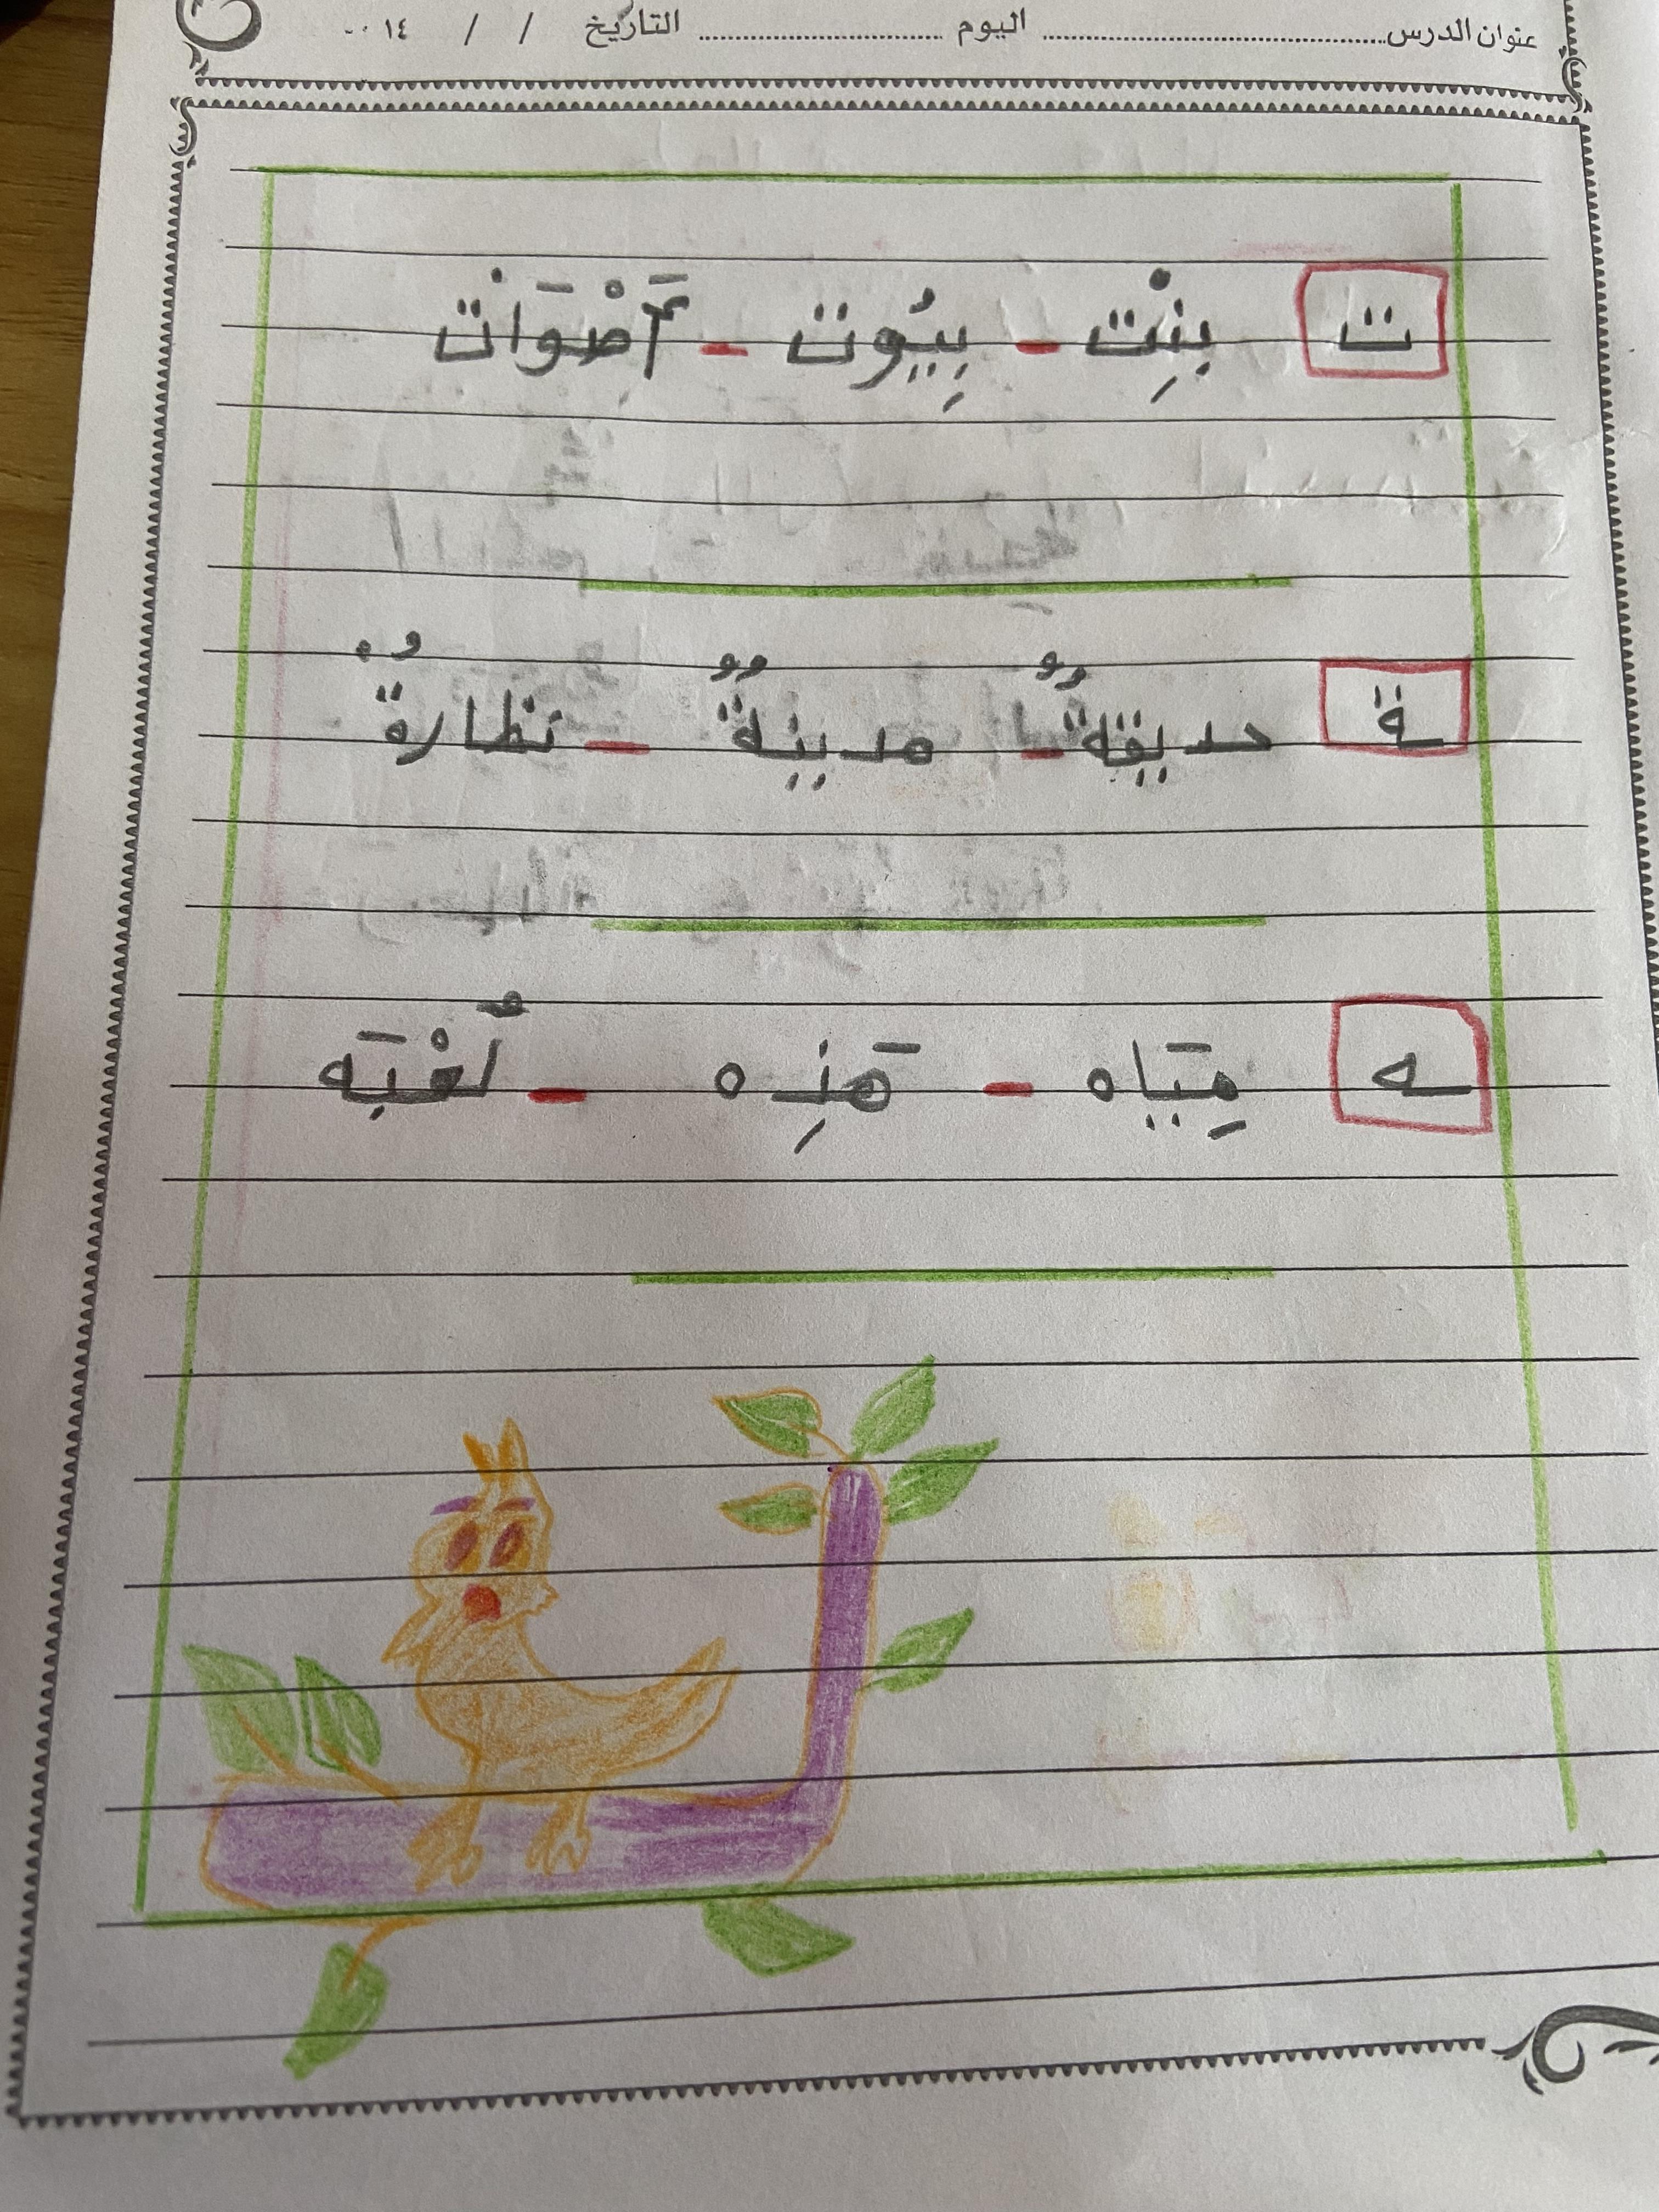 عنوان الدرس اليوم التاريخ / / ١٤
ت بِنْت - بِيُوت - أَصْوَات
ة حديقةٌ - مدينةٌ - نظارةُ
ه مِيَاه - هَذِه - لُعْبَه